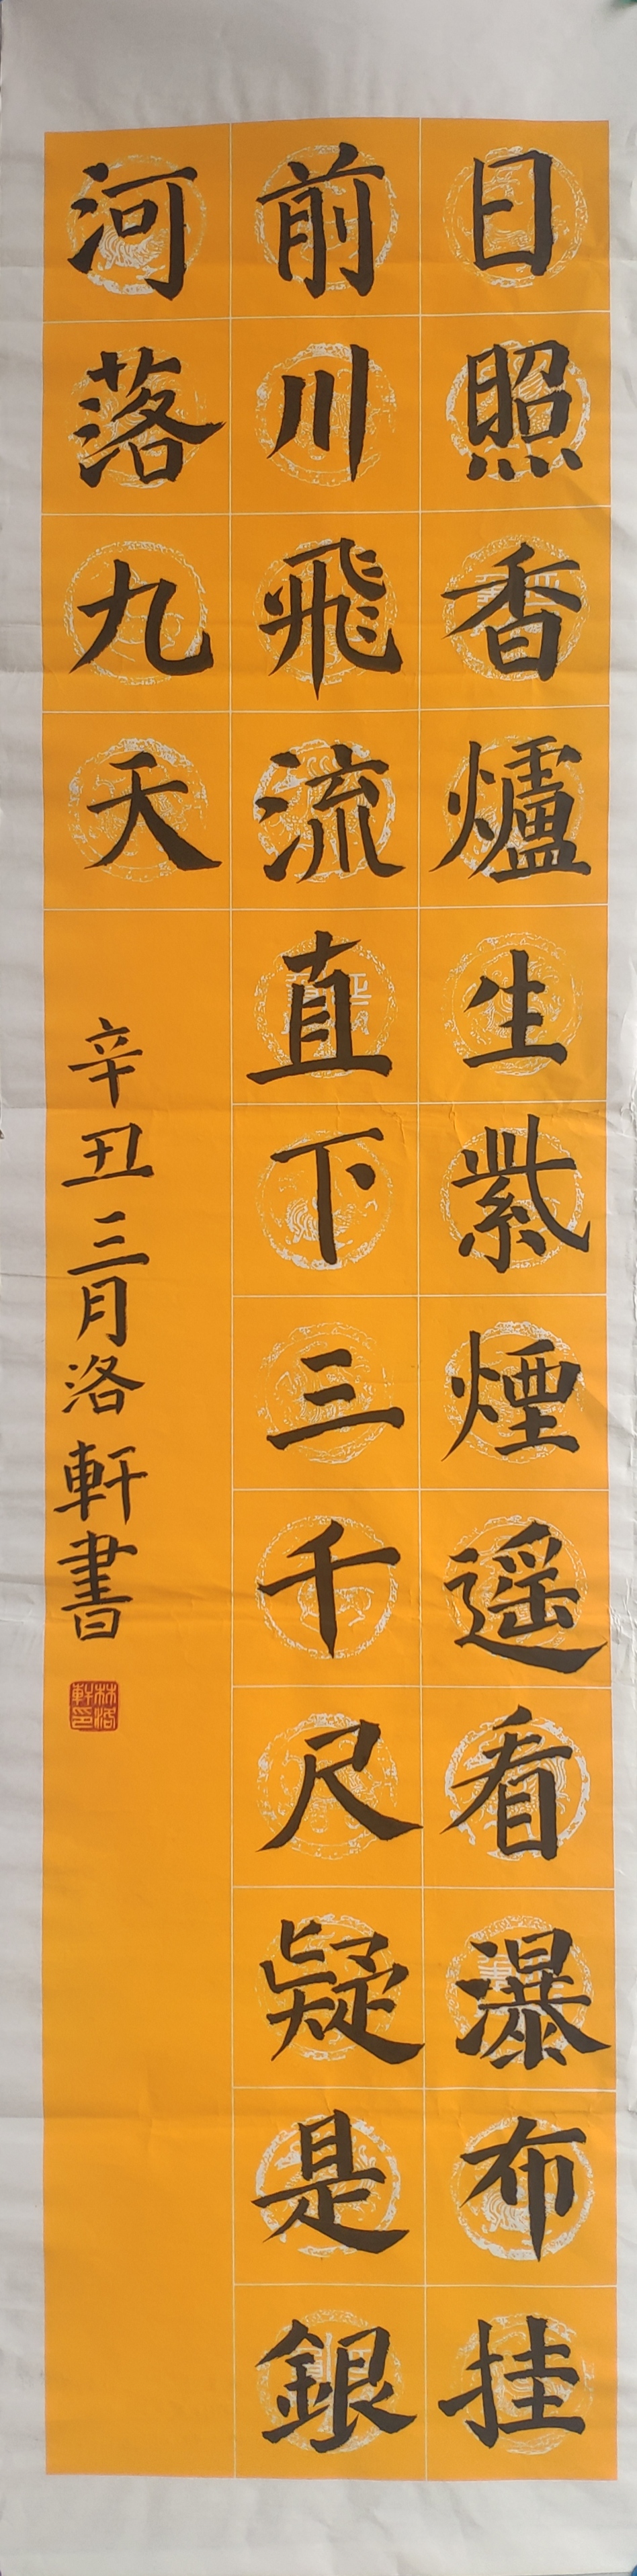 日照香爐生紫煙遥看瀑布挂
前川飛流直下三千尺疑是銀
河落九天
辛丑三月洛軒書
林洛軒印